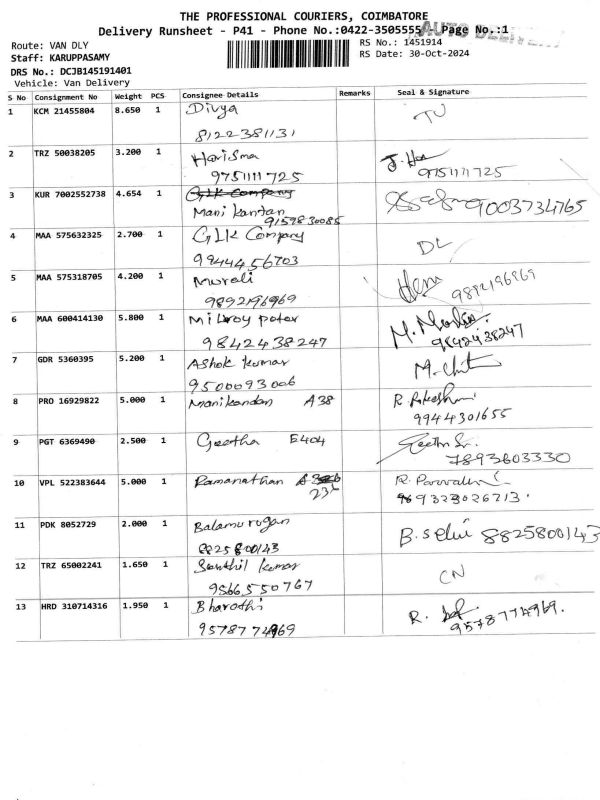 THE PROFESSIONAL COURIERS, COIMBATORE
Delivery Runsheet - P41 - Phone No.:0422-3505555 Page No.:1
AUTO DELIVERY
Route: VAN DLY
RS No.: 1451914
Staff: KARUPPASAMY
RS Date: 30-Oct-2024
DRS No.: DCJB145191401
Vehicle: Van Delivery
S No Consignment No Weight PCS Consignee Details Remarks Seal & Signature
1 KCM 21455804 8.650 1 Divya TU
8122381131
2 TRZ 50038205 3.200 1 Harisma
9751111725 9751111725
3 KUR 7002552738 4.654 1 GLK Company
Mani kantan 9003734765
9159830085
4 MAA 575632325 2.700 1 GLK Company DL
9944456703
5 MAA 575318705 4.200 1 Murali Hem
9892196969 9892196969
6 MAA 600414130 5.800 1 Milroy peter
9842438247 9842438247
7 GDR 5360395 5.200 1 Ashok kumar
9500093006
8 PRO 16929822 5.000 1 Manikandan A38
9944301655
9 PGT 6369490 2.500 1 Geetha E404
7893603330
10 VPL 522383644 5.000 1 Ramanathan
9323026213
11 PDK 8052729 2.000 1 Balamurugan B. Selvi 8825800143
8825800143
12 TRZ 65002241 1.650 1 Senthil kumar CN
9566550767
13 HRD 310714316 1.950 1 Bharathi R.
9578774969 9578774969.